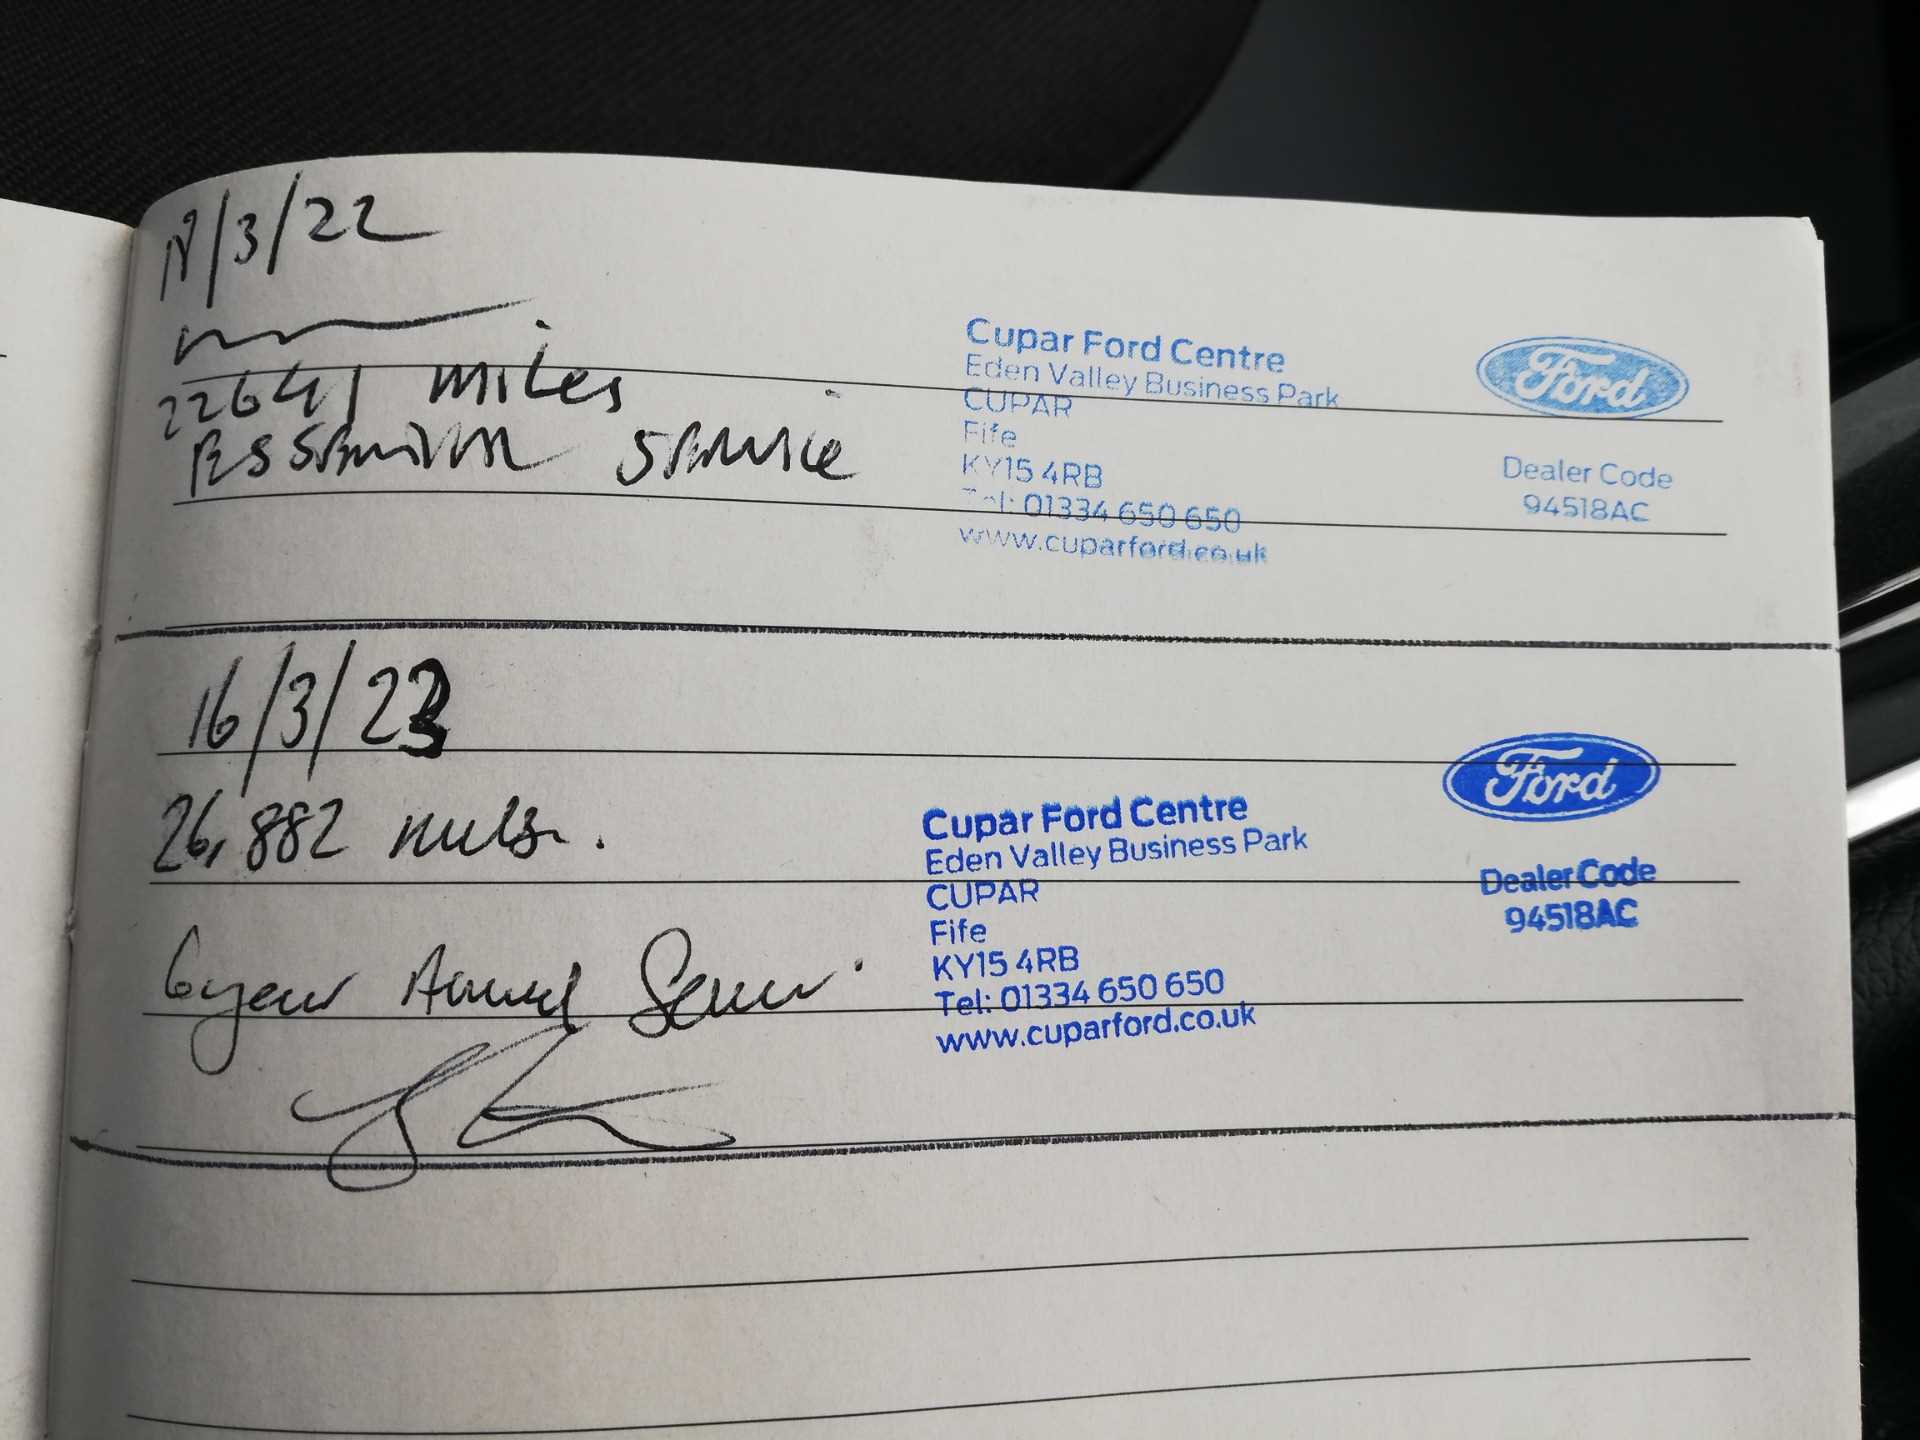 18/3/22
22641 miles
ESSENTIAL SERVICE
Cupar Ford Centre
Eden Valley Business Park
CUPAR
Fife
KY15 4RB
Tel: 01334 650 650
www.cuparford.co.uk
Ford
Dealer Code
94518AC
16/3/23
26,882 miles.
6 year Annual Service
Cupar Ford Centre
Eden Valley Business Park
CUPAR
Fife
KY15 4RB
Tel: 01334 650 650
www.cuparford.co.uk
Ford
Dealer Code
94518AC